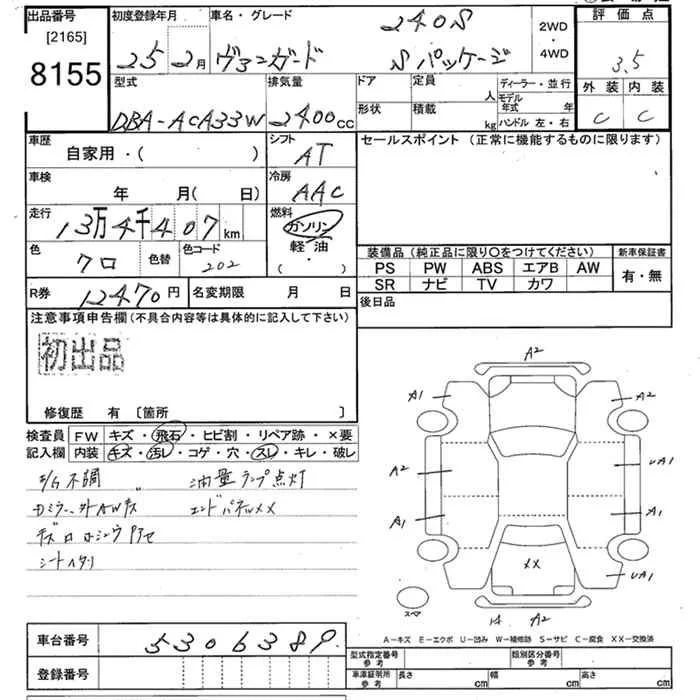 出品番号
[2165]
8155
初度登録年月
25年2月
車名・グレード
ヴァンガード
240S
Sパッケージ
2WD・4WD
評価点
3.5
外装 内装
C C
型式
DBA-ACA33W
排気量
2400cc
ドア
形状
定員 人
積載 kg
ディーラー・並行
モデル年式 年
ハンドル 左・右
車歴
自家用・( )
シフト
AT
セールスポイント (正常に機能するものに限ります)
車検
年 月( 日)
冷房
AAC
走行
13万4千407km
燃料
ガソリン
軽油
( ・ )
色
クロ
色替
色コード
202
装備品 (純正品に限り○をつけてください)
新車保証書
PS PW ABS エアB AW
SR ナビ TV カワ
有・無
R券 12470円
名変期限 月 日
後日品
注意事項申告欄(不具合内容等は具体的に記入して下さい)
初出品
修復歴 有 [箇所 ]
検査員記入欄
FW キズ・飛石・ヒビ割・リペア跡・×要
内装 キズ・汚レ・コゲ・穴・スレ・キレ・破レ
E/G不調 油量ランプ点灯
Dミラー、外AWキズ エンドパネルXX
シートヘタリ
A2
A1
A2
A2
UA1
A1
A1
XX
UA1
スペア
A2
A-キズ E-エクボ U-凹み W-補修跡 S-サビ C-腐食 XX-交換済
車台番号
5306389
登録番号
型式指定番号 参考
類別区分番号 参考
車庫証明所 参考
長さ cm
幅 cm
高さ cm